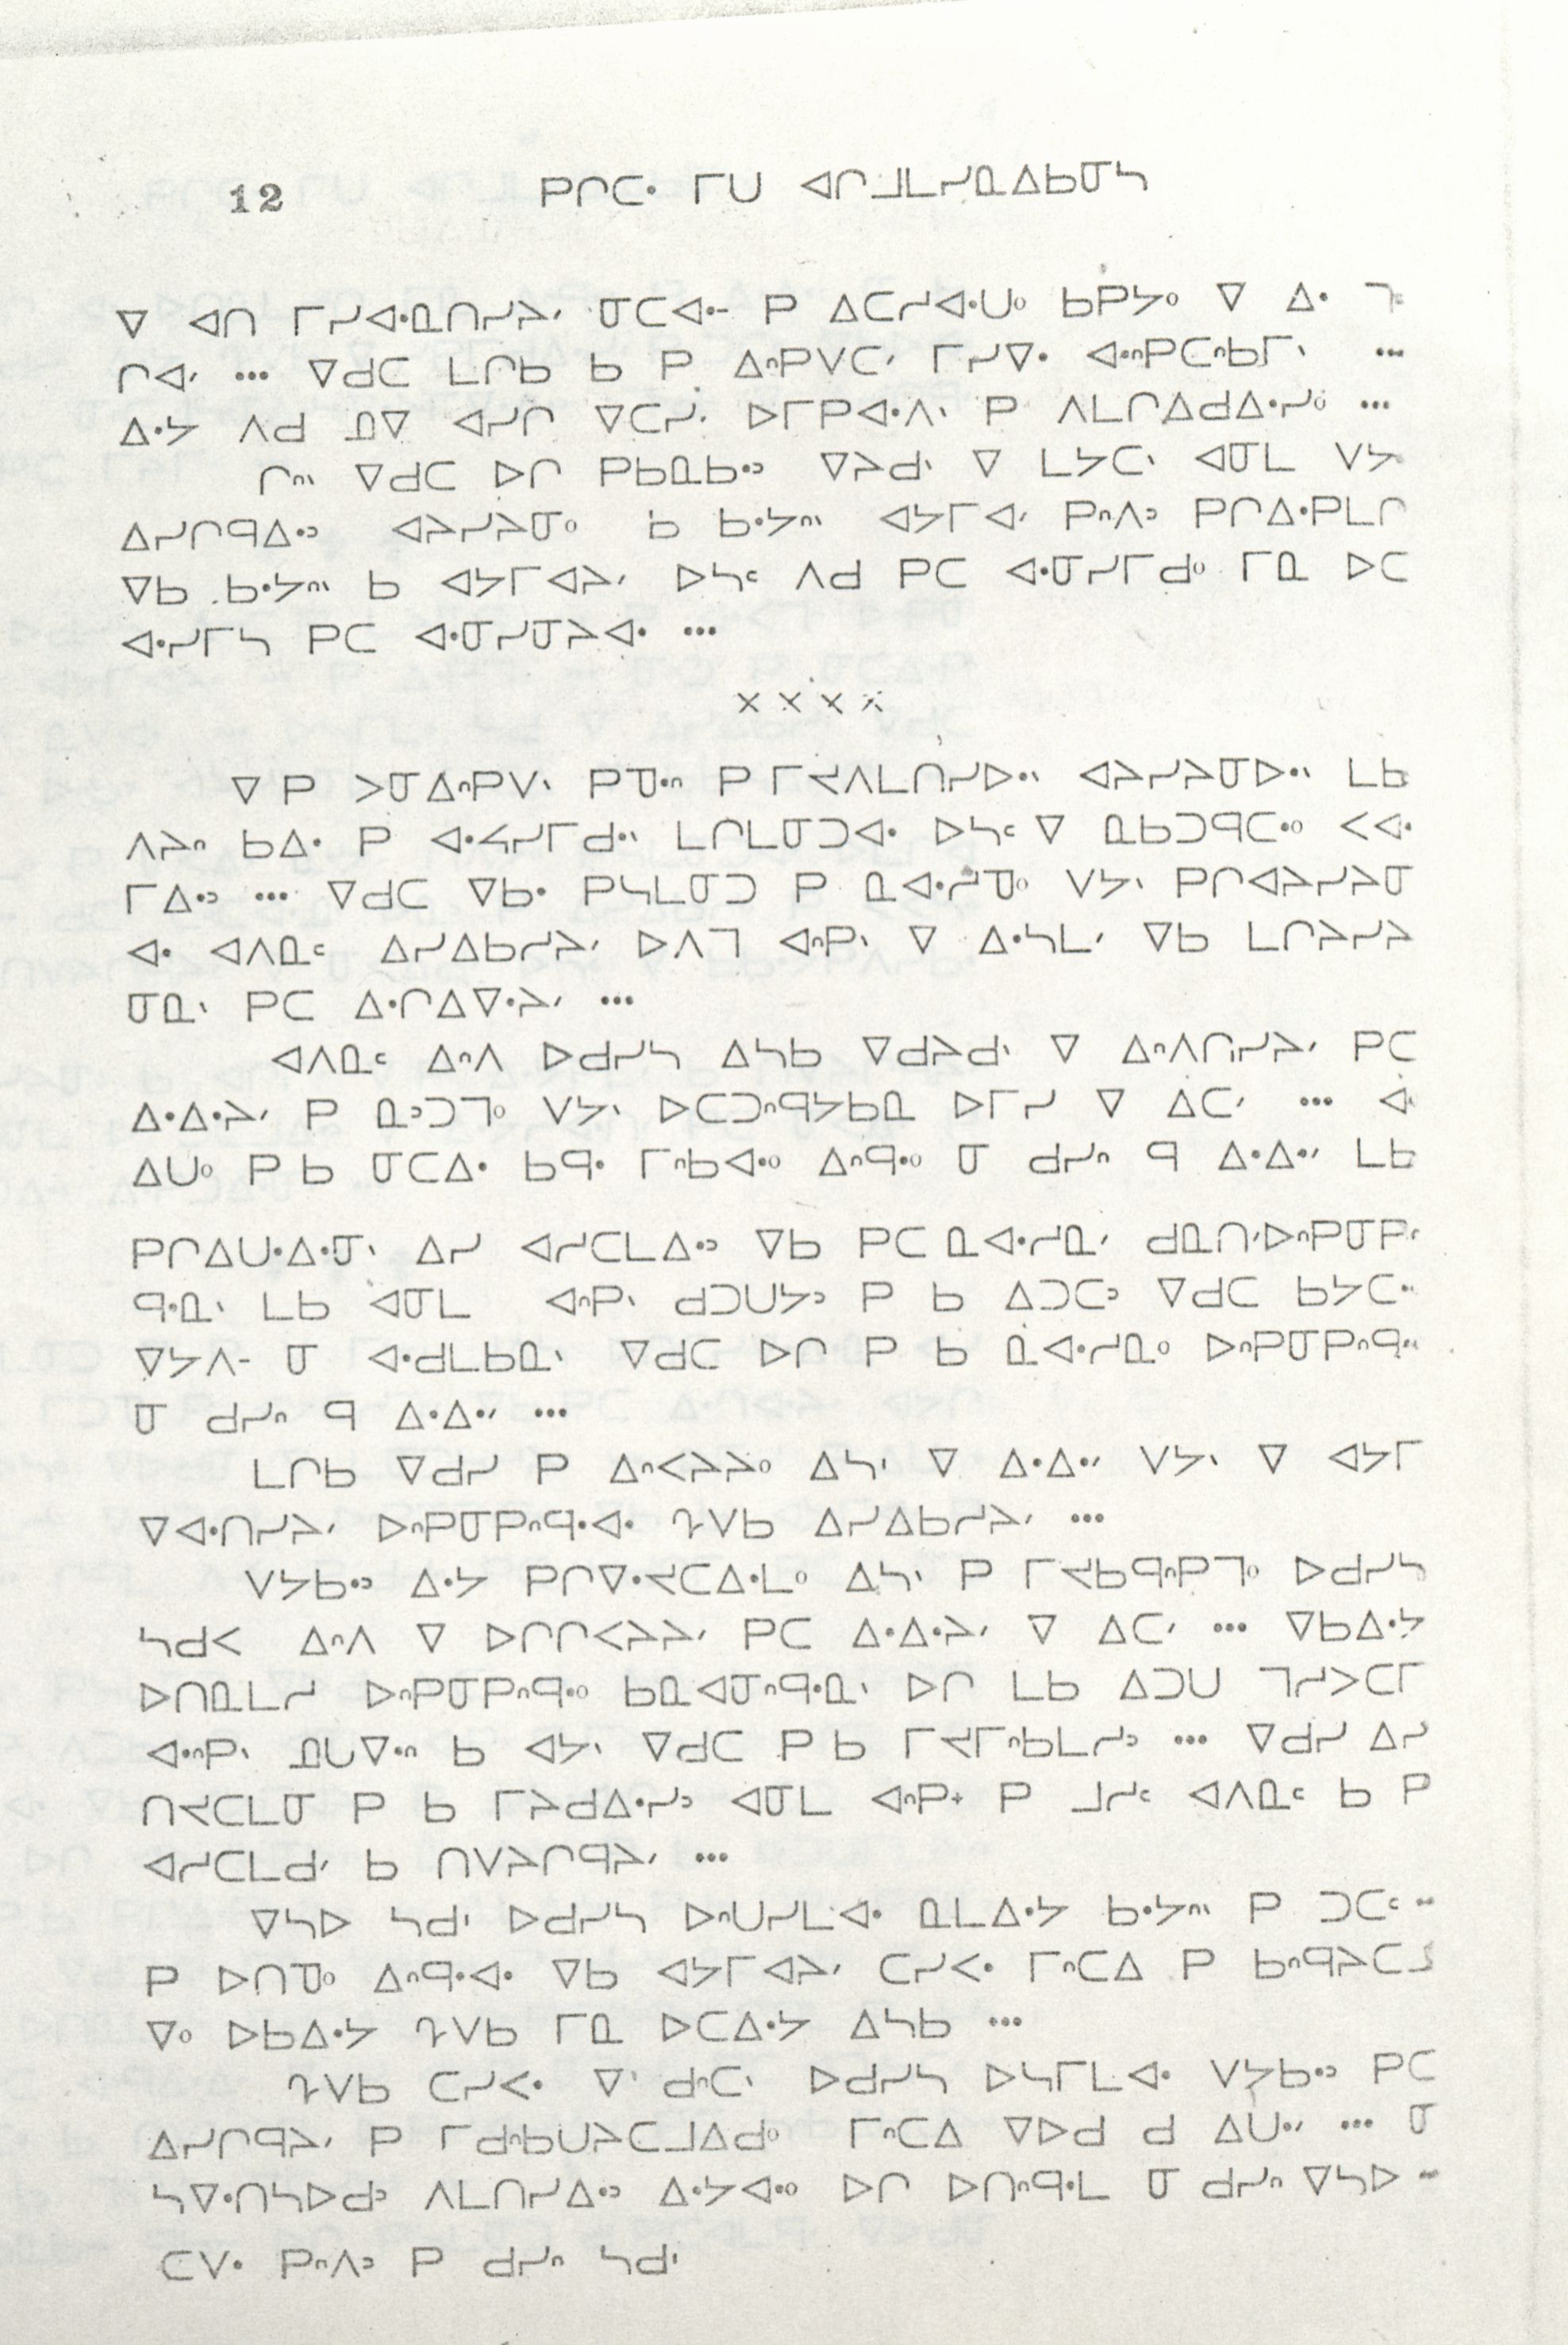 12 ᑭᒋᑕᐧ ᒥᑌ ᐊᒋᒧᒪᓯᓇᐃᑲᓂᓴ
ᐁ ᐊᑎ ᒥᓯᐊᐧᓇᑎᓯᔨᐟ ᓂᑕᐊᐧᐨ ᑭ ᐃᑕᓱᐊᐧᑌᐤ ᑲᑭᔭᐤ ᐁ ᐃᐧ
ᒋᐊᐟ ... ᐁᑯᑕ ᒪᒋᑲ ᑲ ᑭ ᐃᐢᑭᐯᑕᐟ ᒥᓯᐁᐧ ᐊᐧᐢᑭᑕᐢᑲᒥᐠ ...
ᐃᐧᔭ ᐱᑯ ᓅᐁ ᐊᓯᒋ ᐁᑕᓯ ᐅᒥᑭᐊᐧᐱᐠ ᑭ ᐱᒪᒋᐃᑯᐃᐧᓯᐤ ...
ᒋᐢᐠ ᐁᑯᑕ ᐅᒋ ᑭᑲᓇᑲᐧᐣ ᐁᔨᑯᐠ ᐁ ᒪᔭᑕᐠ ᐊᓂᒪ ᐯᔭᐠ
ᐃᓯᒋᑫᐃᐧᐣ ᐊᔨᓯᔨᓂᐤ ᑲ ᑲᐧᔭᐢᐠ ᐊᔭᒥᐊᐟ ᑭᐢᐱᐣ ᑭᒋᐃᐧᑭᒪᒋ
ᐁᑲ ᑲᐧᔭᐢᐠ ᑲ ᐊᔭᒥᐊᔨᐟ ᐅᓴᒼ ᐱᑯ ᑭᑕ ᐊᐧᓂᓯᒥᑯᐤ ᒥᓇ ᐅᑕ
ᐊᐧᓯᒥᓴ ᑭᑕ ᐊᐧᓂᓯᓂᔨᐊᐧ ...
× × × ×
ᐁ ᑭ ᐳᓂᐃᐧᐢᑭᐯᐠ ᑭᓄᐧᐢ ᑭ ᒥᔪᐱᒪᑎᓯᐅᐧᐠ ᐊᔨᓯᔨᓂᐅᐧᐠ ᒪᑲ
ᐱᔨᐢ ᑲᐃᐧ ᑭ ᐊᐧᔦᓯᒥᑯᐧᐠ ᒪᒋᒪᓂᑐᐊᐧ ᐅᓴᒼ ᐁ ᓇᑲᑐᑫᑕᐧᐤ ᐸᐊᐧ
ᒥᐃᐧᐣ ... ᐁᑯᑕ ᐁᑲᐧ ᑭᓴᒪᓂᑐ ᑭ ᓇᐊᐧᓱᓄᐤ ᐯᔭᐠ ᑭᒋᐊᔨᓯᔨᓂ
ᐊᐧ ᐊᐱᓇᒼ ᐃᓯᐃᑲᓱᔨᐟ ᐅᐱᒣ ᐊᐢᑭᐠ ᐁ ᐃᐧᓴᒪᐟ ᐁᑲ ᒪᒋᔨᓯᔨ
ᓂᓇᐠ ᑭᑕ ᐃᐧᒋᐃᐁᐧᔨᐟ ...
ᐊᐱᓇᒼ ᐃᐢᐱ ᐅᑯᓯᓴ ᐃᓴᑲ ᐁᑯᔨᑯᐠ ᐁ ᐃᐢᐱᑎᓯᔨᐟ ᑭᑕ
ᐃᐧᐃᐧᔨᐟ ᑭ ᓇᐣᑐᒣᐤ ᐯᔭᐠ ᐅᑕᑐᐢᑫᔭᑲᓇ ᐅᒥᓯ ᐁ ᐃᑕᐟ ... ᐊ
ᐃᑌᐤ ᑭ ᑲ ᓂᑕᐃᐧ ᑲᑫᐧ ᒥᐢᑲᐊᐧᐤ ᐃᐢᑫᐧᐤ ᓂ ᑯᓯᐢ ᑫ ᐃᐧᐃᐧᐟ ᒪᑲ
ᑭᒋᐃᑌᐧᐃᐧᓂᐠ ᐃᓯ ᐊᓱᑕᒪᐃᐧᐣ ᐁᑲ ᑭᑕ ᓇᐊᐧᓱᓇᐟ ᑯᓇᑎᐟᐅᐢᑭᓂᑭ
ᑫᐧᓇᐠ ᒪᑲ ᐊᓂᒪ ᐊᐢᑭᐠ ᑯᑐᑌᔭᐣ ᑭ ᑲ ᐃᑐᑕᐣ ᐁᑯᑕ ᑲᔭᑕᐧ
ᐁᔭᐱᐨ ᓂ ᐊᐧᑯᒪᑲᓇᐠ ᐁᑯᑕ ᐅᒋ ᑭ ᑲ ᓇᐊᐧᓱᓇᐤ ᐅᐢᑭᓂᑭᐢᑫᐧᐤ
ᓂ ᑯᓯᐢ ᑫ ᐃᐧᐃᐧᐟ ...
ᒪᒋᑲ ᐁᑯᓯ ᑭ ᐃᐢᐸᔨᔨᐤ ᐃᓴᐠ ᐁ ᐃᐧᐃᐧᐟ ᐯᔭᐠ ᐁ ᐊᔭᒥ
ᐁᐊᐧᑎᓯᔨᐟ ᐅᐢᑭᓂᑭᐢᑫᐧᐊᐧ ᔐᐯᑲ ᐃᓯᐃᑲᓱᔨᐟ ...
ᐯᔭᑲᐧᐣ ᐃᐧᔭ ᑭᒋᐁᐧᔪᑕᐃᐧᒪᐤ ᐃᓴᐠ ᑭ ᒥᔪᑲᑫᐧᐢᑭᒣᐤ ᐅᑯᓯᓴ
ᓴᑯᐸ ᐃᐢᐱ ᐁ ᐅᒋᒋᐸᔨᔨᐟ ᑭᑕ ᐃᐧᐃᐧᔨᐟ ᐁ ᐃᑕᐟ ... ᐁᑲᐃᐧᔭ
ᐅᑎᓇᒪᓱ ᐅᐢᑭᓂᑭᐢᑫᐧᐤ ᑲᓇᐊᓂᐢᑫᐧᓇᐠ ᐅᒋ ᒪᑲ ᐃᑐᑌ ᒣᓱᐳᑕᒥ
ᐊᐧᐢᑭᐠ ᓅᑌᐁᐧᐢ ᑲ ᐊᔭᐠ ᐁᑯᑕ ᑭ ᑲ ᒥᔪᒥᐢᑲᒪᓱᐣ ... ᐁᑯᓯ ᐃᓯ
ᑎᔪᑕᒪᓂ ᑭ ᑲ ᒥᔨᑯᐃᐧᓯᐣ ᐊᓂᒪ ᐊᐢᑭᕀ ᑭ ᒧᓱᒼ ᐊᐱᓇᒼ ᑲ ᑭ
ᐊᓱᑕᒪᑯᐟ ᑲ ᑎᐯᔨᒋᑫᔨᐟ ...
ᐁᓴᐅ ᓴᑯᑊ ᐅᑯᓯᓴ ᐅᐢᑌᓯᒪᐊᐧ ᓇᒪᐃᐧᔭ ᑲᐧᔭᐢᐠ ᑭ ᑐᑕᒼ
ᑭ ᐅᑎᓄᐤ ᐃᐢᑫᐧᐊᐧ ᐁᑲ ᐊᔭᒥᐊᔨᐟ ᑕᓯᐸᐧ ᒥᐢᑕᐃ ᑭ ᑲᐢᑫᔨᑕ
ᐁᐤ ᐅᑲᐃᐧᔭ ᔐᐯᑲ ᒥᓇ ᐅᑕᐃᐧᔭ ᐃᓴᑲ ...
ᔐᐯᑲ ᑕᓯᐸᐧ ᐁ ᑯᐢᑕᐠ ᐅᑯᓯᓴ ᐅᓯᒥᒪᐊᐧ ᐯᔭᑲᐧᐣ ᑭᑕ
ᐃᓯᒋᑫᔨᐟ ᑭ ᒥᑯᐢᑲᑌᔨᑕᒧᐃᑯᐤ ᒥᐢᑕᐃ ᐁᐅᑯ ᑯ ᐃᑌᐧᐟ ... ᓂ
ᓴᐁᐧᑎᓴᐅᑯᐣ ᐱᒪᑎᓱᐃᐧᐣ ᐃᐧᔭᐊᐧᐤ ᐅᒋ ᐅᑎᐢᑫᐧᒪ ᓂ ᑯᓯᐢ ᐁᓴᐅ
ᑕᐯᐧ ᑭᐢᐱᐣ ᑭ ᑯᓯᐢ ᓴᑯᑊ